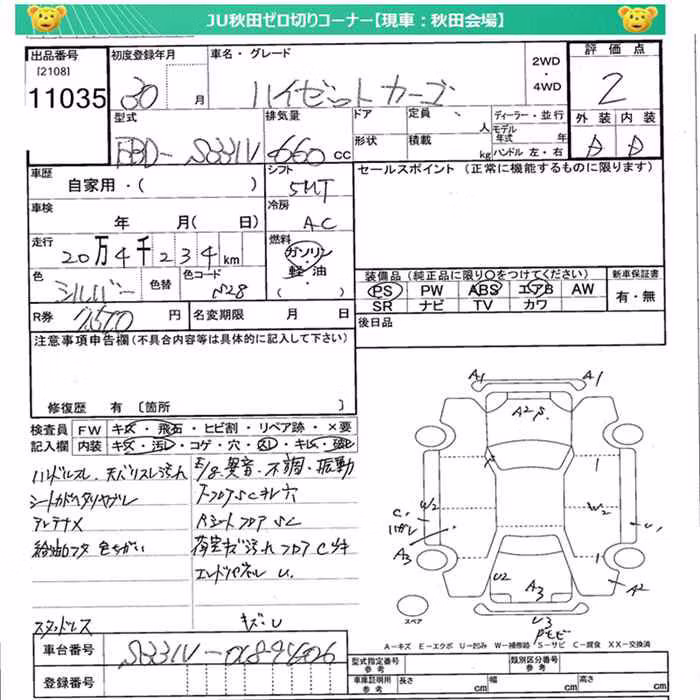 JU秋田ゼロ切りコーナー【現車：秋田会場】
出品番号
[2108]
11035
初度登録年月
30 月
車名・グレード
ハイゼットカーゴ
2WD
・
4WD
評価点
2
型式
EBD-S331V
排気量
660 cc
ドア
形状
定員
人
積載
kg
ディーラー・並行
モデル年式 年
ハンドル 左・右
外装 内装
車歴
自家用・( )
シフト
5MT
セールスポイント (正常に機能するものに限ります)
車検
年 月( 日)
冷房
AC
走行
20万4千234km
燃料
ガソリン
・
軽油
( )
色
シルバー
色替
色コード
S28
装備品 (純正品に限り○をつけてください)
新車保証書
PS PW ABS エアB AW
SR ナビ TV カワ
有・無
R券
円
名変期限 月 日
後日品
注意事項申告欄(不具合内容等は具体的に記入して下さい)
修復歴 有 〔箇所 〕
検査員
記入欄
FW キズ・飛石・ヒビ割・リペア跡・×要
内装 キズ・汚レ・コゲ・穴・スレ・キレ・
ハンドルスレ、天バリスレ汚れ
E/g異音・不調・振動
フロアSCキレ穴
シートカドヘタリヤブレ
アンテナX
Pシートフロア SC
給油口フタ 色ちがい
荷室キズ汚れ フロア Cサキ
エンドパネル U.
スタッドレス
キズ・U
A1 A1
A2 P.
W2
W2
C.
ハガレ
U1
A3
U2
A3
A2
U3
Pモビ
スペア
A−キズ E−エクボ U−凹み W−補修跡 S−サビ C−腐食 XX−交換済
車台番号
S331V-0189406
登録番号
型式指定番号
参考
類別区分番号
参考
車庫証明用
参考
長さ cm
幅 cm
高さ cm